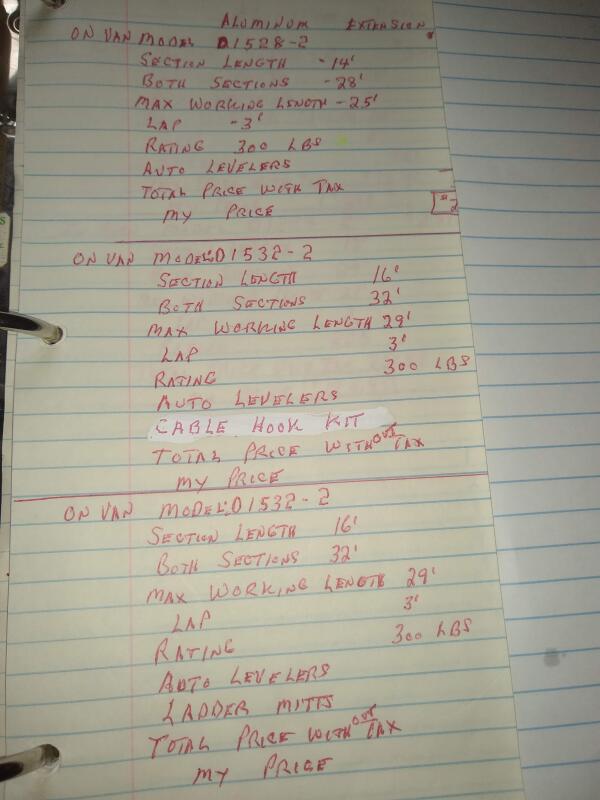 ALUMINUM EXTENSION
ON VAN MODEL D1528-2
SECTION LENGTH - 14'
BOTH SECTIONS - 28'
MAX WORKING LENGTH - 25'
LAP - 3'
RATING 300 LBS
AUTO LEVELERS
TOTAL PRICE WITH TAX
MY PRICE
ON VAN MODEL: D1532-2
SECTION LENGTH 16'
BOTH SECTIONS 32'
MAX WORKING LENGTH 29'
LAP 3'
RATING 300 LBS
AUTO LEVELERS
CABLE HOOK KIT
TOTAL PRICE WITHOUT TAX
MY PRICE
ON VAN MODEL: D1532-2
SECTION LENGTH 16'
BOTH SECTIONS 32'
MAX WORKING LENGTH 29'
LAP 3'
RATING 300 LBS
AUTO LEVELERS
LADDER MITTS
TOTAL PRICE WITHOUT TAX
MY PRICE